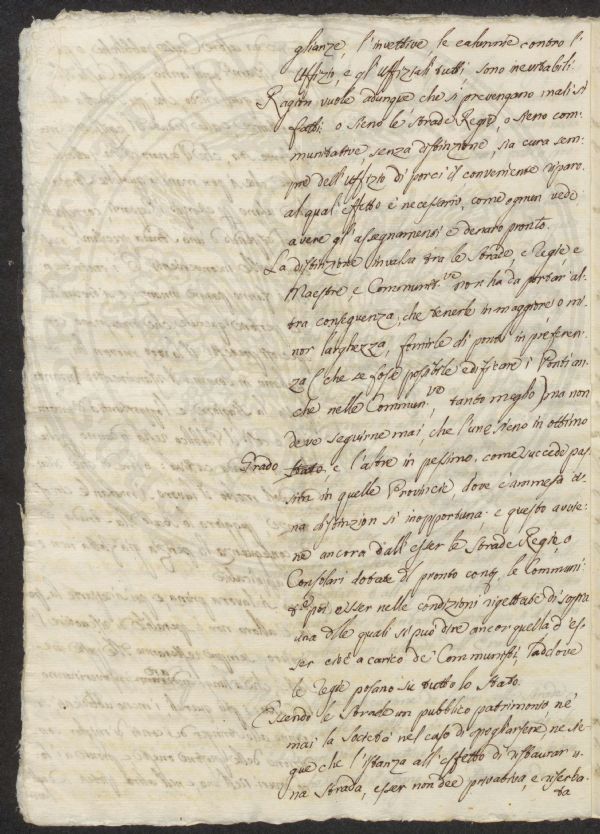 glianze, l'invettive, le calunnie contro l'
Uffizio, e gl'Uffiziali tutti, sono inevitabili.
Ragion vuole adunque che si prevengano i mali sì
fatti: o sieno le Strade Regie, o sieno com-
munitative, senza distinzione, sia cura sem-
pre dell'Uffizio di porci il conveniente riparo.
al qual'effetto è necessario, come ognun vede
avere gl'assegnamenti e denaro pronto.
La distinzione invalsa tra le Strade, e Regie e
Maestre, e Communit.ve non ha da portar'al-
tra conseguenza, che tenerle in maggiore o mi-
nor larghezza, fornirle di ponti in preferen-
za (che se fosse possibile edificare i Ponti an-
che nelle Commun.ve, tanto meglio) ma non
deve seguirne mai, che l'une sieno in ottimo
Grado Stato, e l'altre in pessimo, come succede
in quelle Provincie, dove è ammessa
na distinzion sì inopportuna: e questo avvie-
ne ancora dall'esser le Strade Regie, o
Consolari dotate di pronto le Communi-
t.ve poi esser nelle condizioni rigettate di sopra
una dlle quali si può dire ancor quella d'es-
ser cioè a carico de' Communisti, laddove
le Regie posano su tutto lo Stato.
Essendo le Strade un pubblico patrimonio, nè
mai la Società nel caso di spogliarsene, ne se-
gue che l'istanza all'effetto di ristaurar u-
na Strada, esser non dee privativa, e riserba-
ta